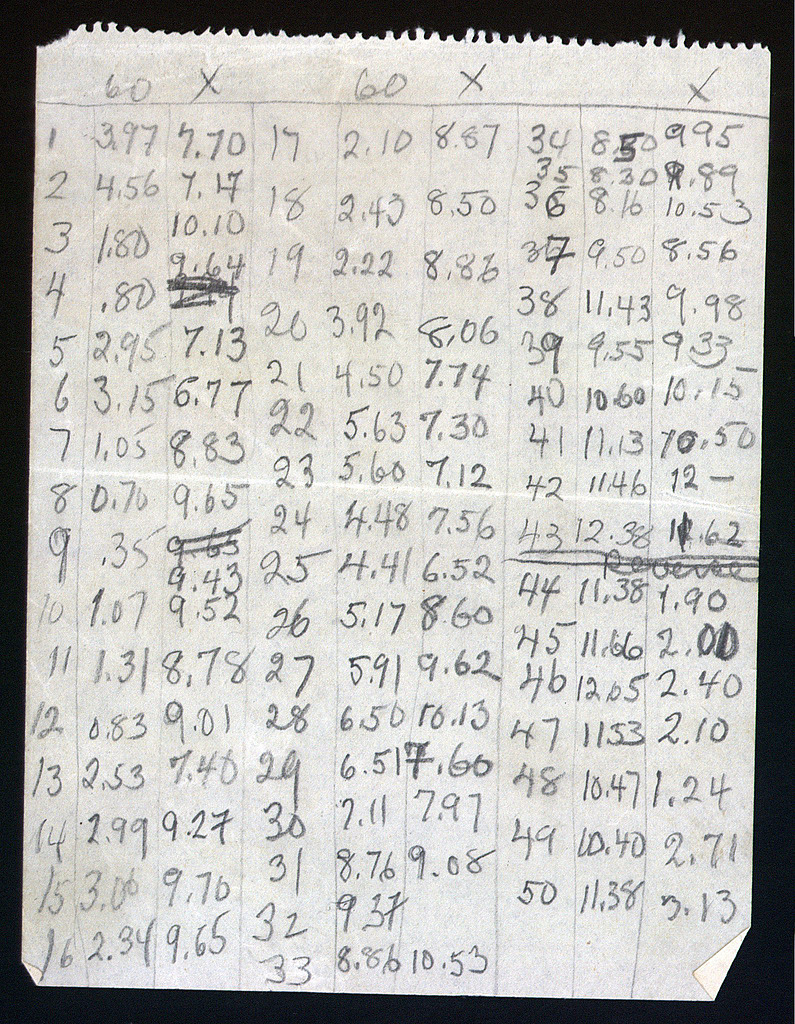 60 X 60 X X
1 3.97 7.70 17 2.10 8.87 34 8.50 9.95
2 4.56 7.17 18 2.43 8.50 35 8.30 9.89
3 1.80 10.10 19 2.22 8.86 36 8.16 10.53
4 .80 9.64 20 3.92 8.06 37 9.50 8.56
5 2.95 7.13 21 4.50 7.74 38 11.43 9.98
6 3.15 6.77 22 5.63 7.30 39 9.55 9.33
7 1.05 8.83 23 5.60 7.12 40 10.60 10.15
8 0.70 9.65 24 4.48 7.56 41 11.13 10.50
9 .35 9.65 9.43 25 4.41 6.52 42 11.46 12 —
10 1.07 9.52 26 5.17 8.60 43 12.38 11.62
Reverse
11 1.31 8.78 27 5.91 9.62 44 11.38 1.90
12 0.83 9.01 28 6.50 10.13 45 11.66 2.00
13 2.53 7.40 29 6.51 7.60 46 12.05 2.40
14 2.99 9.27 30 7.11 7.97 47 11.53 2.10
15 3.06 9.70 31 8.76 9.08 48 10.47 1.24
16 2.34 9.65 32 9.37 49 10.40 2.71
33 8.86 10.53 50 11.38 3.13